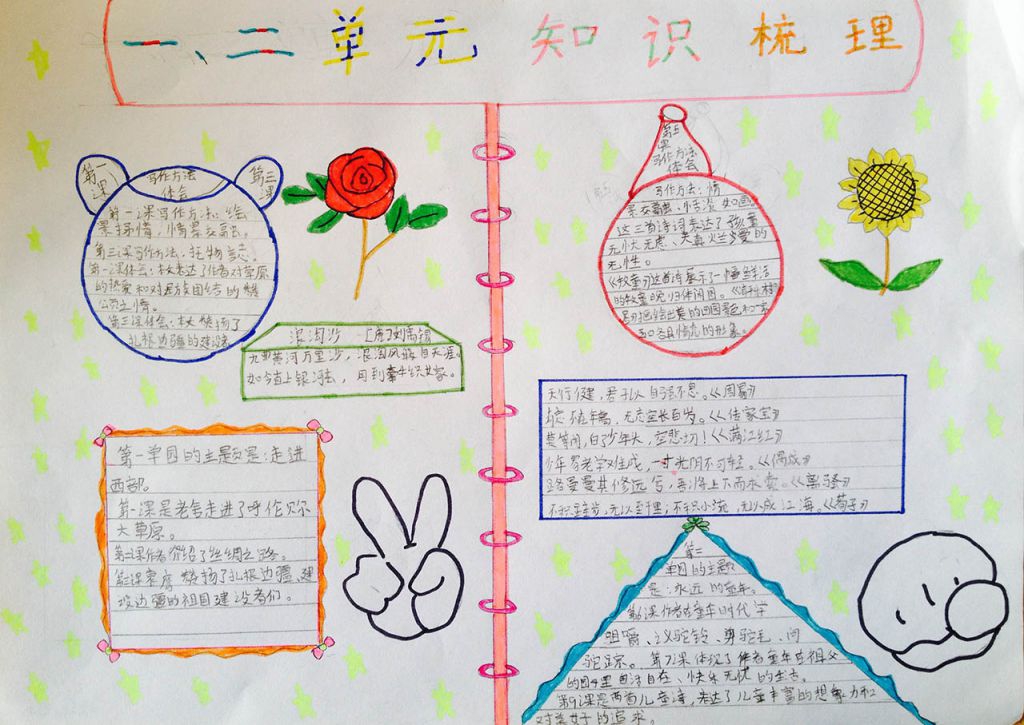 一、二单元知识梳理
第一课
写作方法
体会
第三课
第一课写作方法：绘
景抒情，情景交融。
第三课写作方法：托物言志。
第一课体会：本文表达了作者对草原
的热爱和对民族团结的
之情。
第三课体会：本文赞扬了
扎根边疆的建设者
浪淘沙 [唐]刘禹锡
九曲黄河万里沙，浪淘风簸自天涯。
如今直上银河去，同到牵牛织女家。
第一单园的主题是：走进
西部。
第一课是老舍走进了呼伦贝尔
大草原。
第二课作者介绍了丝绸之路。
第三课 赞扬了扎根边疆、建
设边疆的祖国建设者们。
第五
课
写作方法
体会
写作方法：情
景交融、
这三首诗词表达了孩童
无忧无虑、天真烂漫的
无性。
《牧童》这首诗展示了一幅
的牧童晚归休闲图。
的形象。
天行健，君子以自强不息。《周易》
无 空长百岁。《传家宝》
莫等闲，白了少年头，空悲切！《满江红》
少年易老学难成，一寸光阴不可轻。《偶成》
路曼曼其修远兮，吾将上下而求索。《离骚》
不积跬步，无以至千里；不积小流，无以成江海。《荀子》
第二
单园的主题
是：永远的童年。
第6课作者在童年时代学
咀嚼、 驼铃、剪驼毛、问
驼踪。第7课体现了作者童年与祖父
的园中里自由自在、快乐无忧的生活。
第9课是两首儿童诗，表达了儿童丰富的想象力和
对美好的追求。